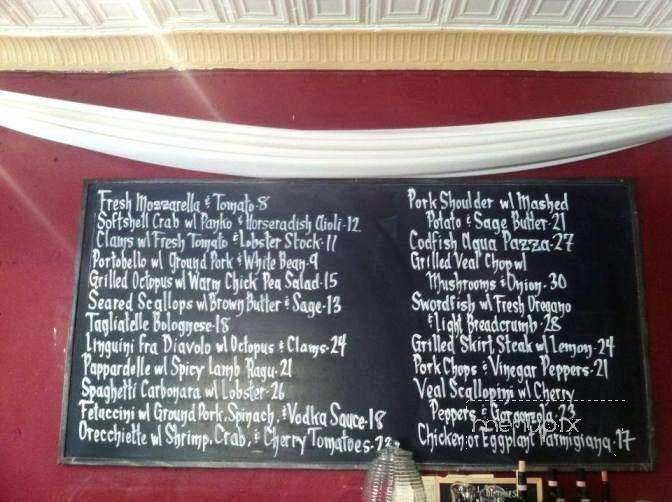 Fresh Mozzarella & Tomato-8
Softshell Crab w/ Panko & Horseradish Aioli-12
Clams w/ Fresh Tomato & Lobster Stock-11
Portobello w/ Ground Pork & White Bean-9
Grilled Octopus w/ Warm Chick Pea Salad-15
Seared Scallops w/ Brown Butter & Sage-13
Tagliatelle Bolognese-18
Linguini Fra Diavolo w/ Octopus & Clams-24
Pappardelle w/ Spicy Lamb Ragu-21
Spaghetti Carbonara w/ Lobster-26
Fetuccini w/ Ground Pork, Spinach, & Vodka Sauce-18
Orecchiette w/ Shrimp, Crab, & Cherry Tomatoes-23
Pork Shoulder w/ Mashed
Potato & Sage Butter-21
Codfish Aqua Pazza-27
Grilled Veal Chop w/
Mushrooms & Onion-30
Swordfish w/ Fresh Oregano
& Light Breadcrumb-28
Grilled Skirt Steak w/ Lemon-24
Pork Chops & Vinegar Peppers-21
Veal Scallopini w/ Cherry
Peppers & Gorgonzola-23
Chicken or Eggplant Parmigiana-17
menupix